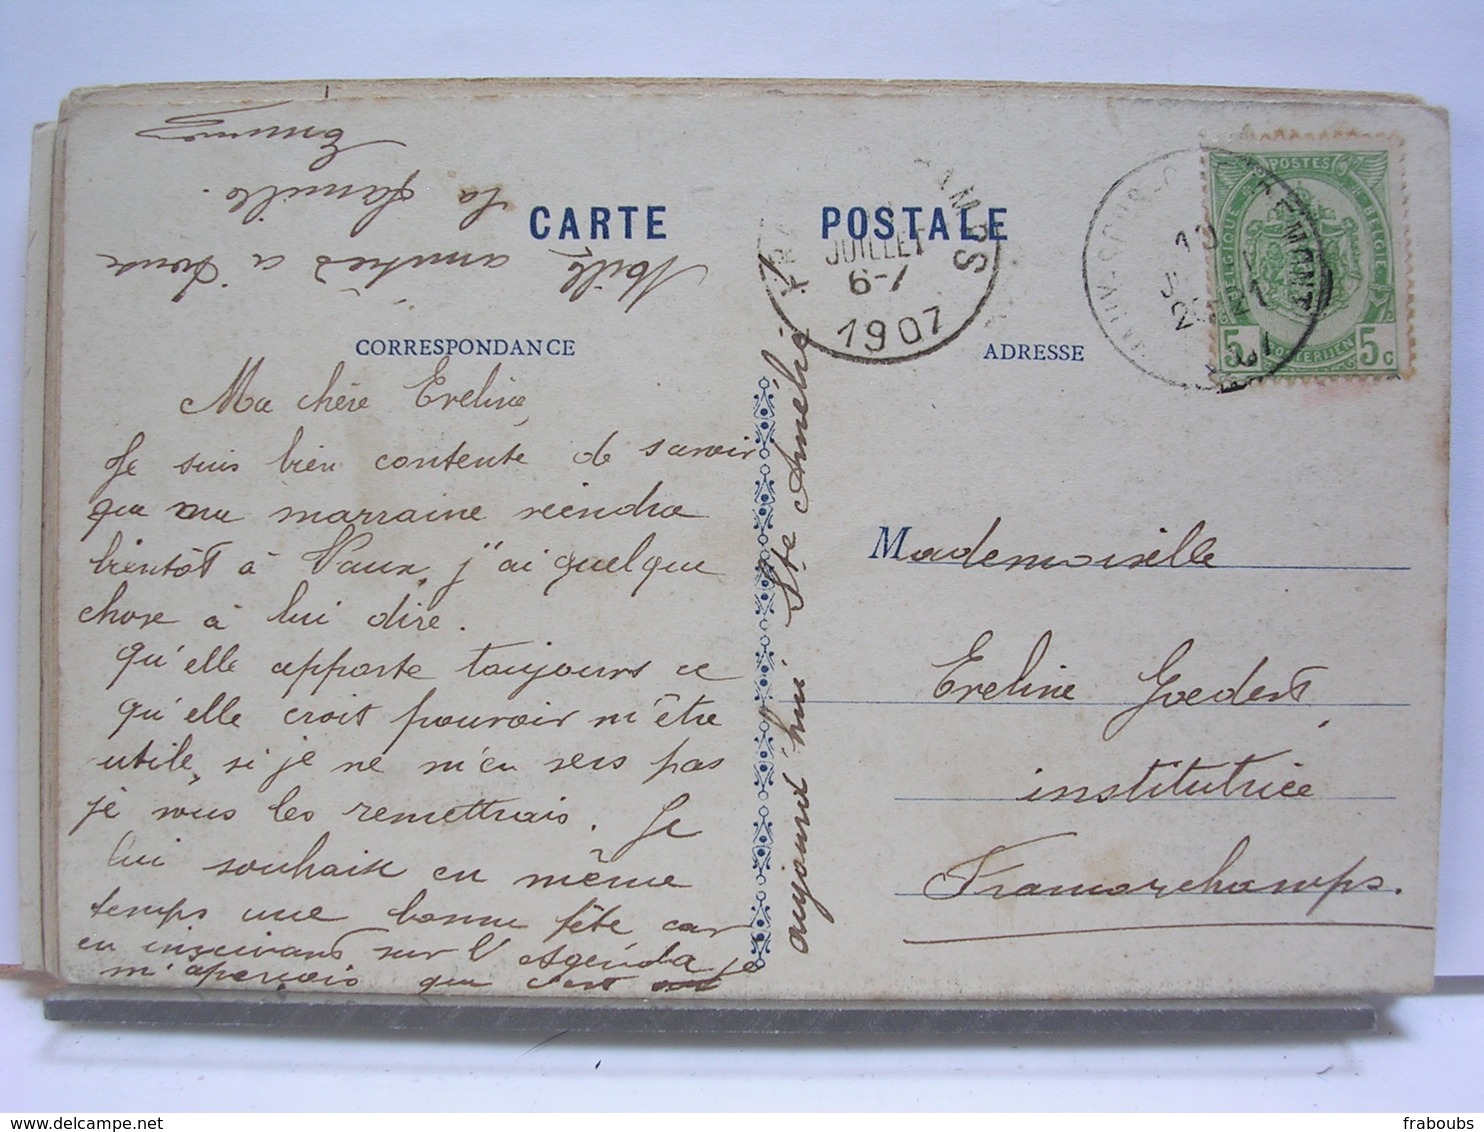 CARTE POSTALE
CORRESPONDANCE
Ma chère Eveline,
Je suis bien contente de savoir
que ma marraine viendra
bientôt à Vaux, j'ai quelque
chose à lui dire.
qu'elle apporte toujours ce
qu'elle croit pouvoir m'être
utile, si je ne m'en sers pas
je vous les remettrais. Je
lui souhaite en même
temps une bonne fête car
en inscrivant sur l'Agenda je
m'aperçois que c'est
aujourd'hui Ste Amélie
Mille amitiés à toute
la famille.
Emma
JUILLET
6-7
1907
ADRESSE
POSTES
BELGIQUE
BELGIE
POSTERIJEN
5 5c
Mademoiselle
Eveline Goedert,
institutrice
Francorchamps.
fraboubs